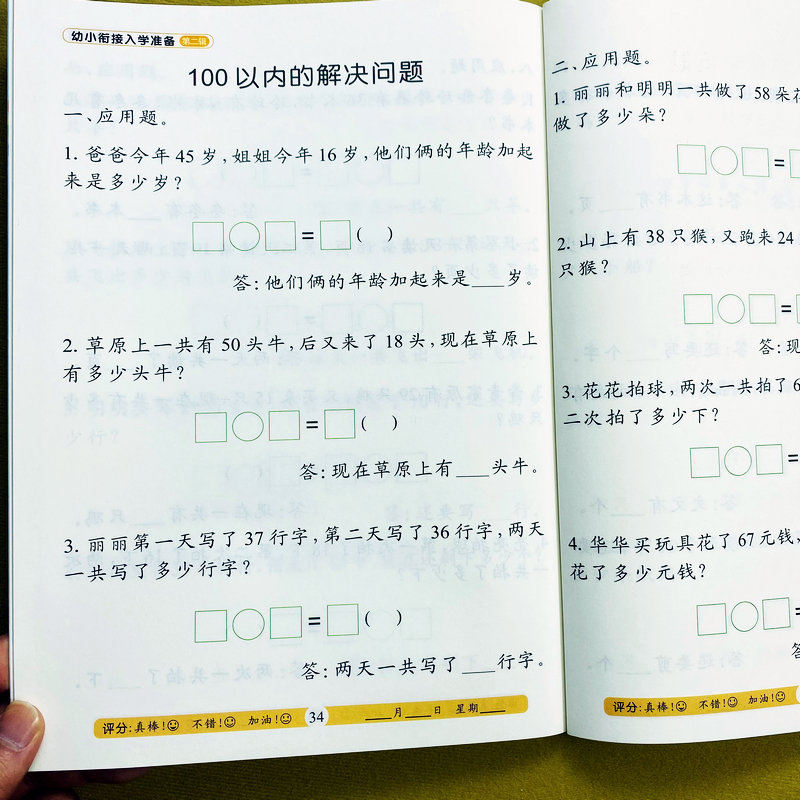 幼小衔接入学准备 第二辑
100以内的解决问题
一、应用题。
1. 爸爸今年45岁,姐姐今年16岁,他们俩的年龄加起
来是多少岁?
□○□=□( )
答:他们俩的年龄加起来是___岁。
2. 草原上一共有50头牛,后又来了18头,现在草原上
有多少头牛?
□○□=□( )
答:现在草原上有___头牛。
3. 丽丽第一天写了37行字,第二天写了36行字,两天
一共写了多少行字?
□○□=□( )
答:两天一共写了___行字。
评分:真棒! 不错! 加油! 34 ___月___日 星期___
二、应用题。
1. 丽丽和明明一共做了58朵花
做了多少朵?
□○□=
2. 山上有38只猴,又跑来24
只猴?
□○□=
答:现
3. 花花拍球,两次一共拍了6
二次拍了多少下?
□○□=
4. 华华买玩具花了67元钱,
花了多少元钱?
□○□=
答
评分:真棒! 不错! 加油!